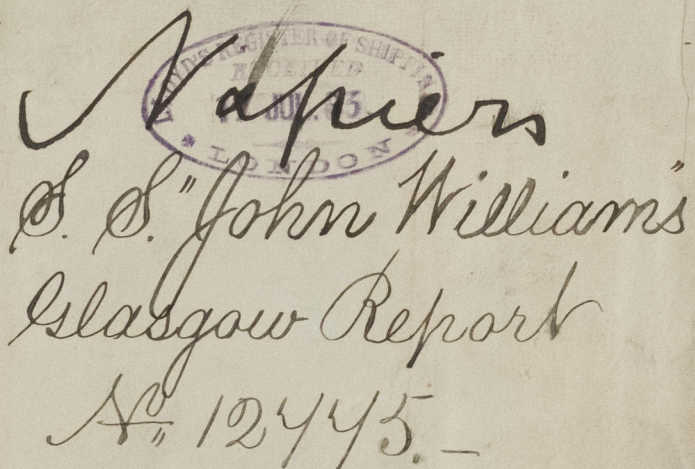 LLOYD'S REGISTER OF SHIPPING
RECEIVED
LONDON
Napiers
S. S. "John Williams"
Glasgow Report
No 12445. —